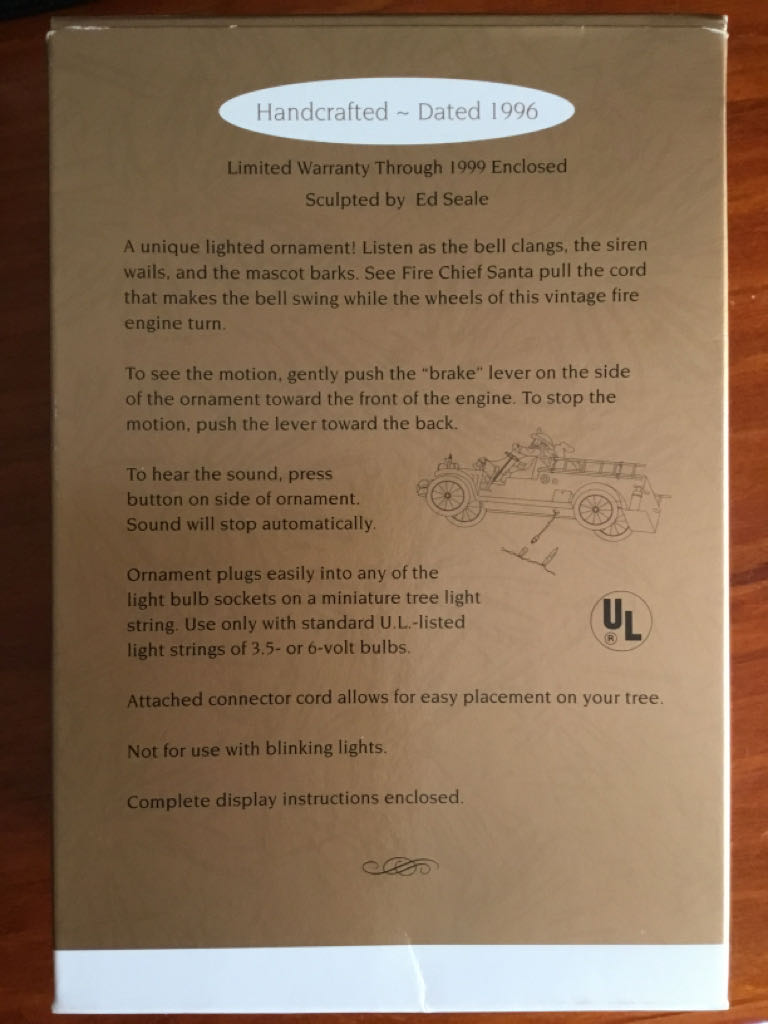 Handcrafted ~ Dated 1996
Limited Warranty Through 1999 Enclosed
Sculpted by Ed Seale
A unique lighted ornament! Listen as the bell clangs, the siren
wails, and the mascot barks. See Fire Chief Santa pull the cord
that makes the bell swing while the wheels of this vintage fire
engine turn.
To see the motion, gently push the “brake” lever on the side
of the ornament toward the front of the engine. To stop the
motion, push the lever toward the back.
To hear the sound, press
button on side of ornament.
Sound will stop automatically.
Ornament plugs easily into any of the
light bulb sockets on a miniature tree light
string. Use only with standard U.L.-listed
light strings of 3.5- or 6-volt bulbs.
UL
®
Attached connector cord allows for easy placement on your tree.
Not for use with blinking lights.
Complete display instructions enclosed.